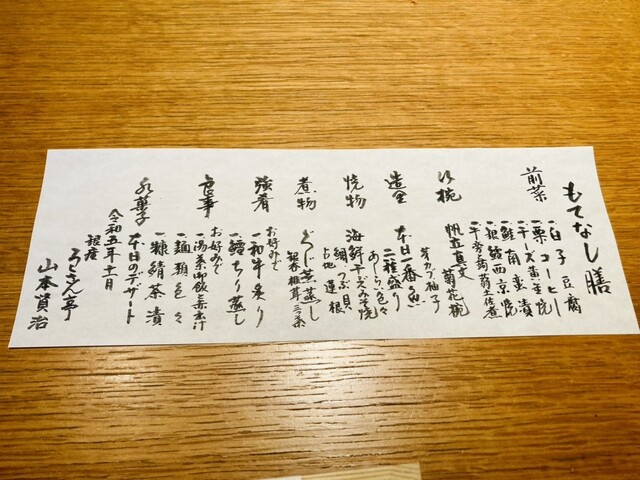 もてなし膳
前菜
一白子豆腐
一栗コーヒー
一チーズ黄金焼
一鮭南蛮漬
一銀鱈西京焼
一牛旁蒟蒻土佐煮
吸椀
帆立真丈
菊花椀
芽カブ柚子
造里
本日一番の魚
二種盛り
あしらい色々
焼物
海鮮干どみそ焼
鯛つぶ貝
占地蓮根
煮物
銀杏椎茸三つ葉
強肴
お好みで
一和牛炙り
一鱈ちり蒸し
食事
お好みで
一湯茶御飯と赤出汁
一麺類色々
一糠鯖茶漬
水菓子
本日のデザート
令和五年十一月
銀座
うさん亭
山本賢治